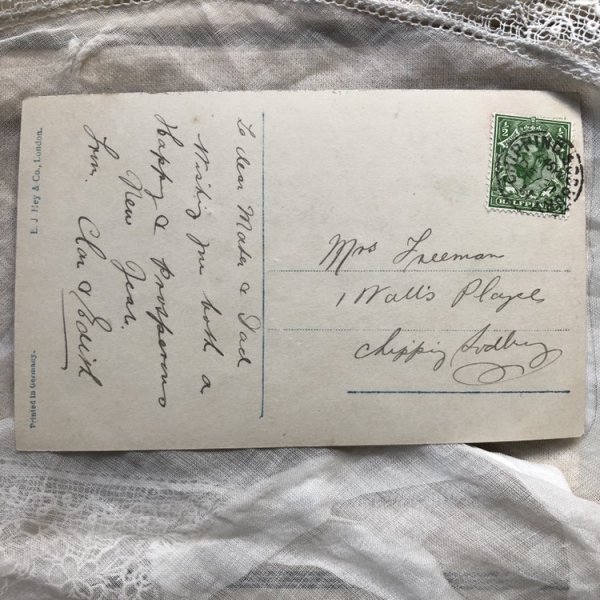 To dear Mater & Dad
Wishing you both a
Happy & prosperous
New Year.
From Clar & Edith
Mrs Freeman
1 Wall's Place
Chipping Sodbury
½
HALFPENNY
CHIPPING SODBURY
E. J. Hey & Co., London.
Printed in Germany.